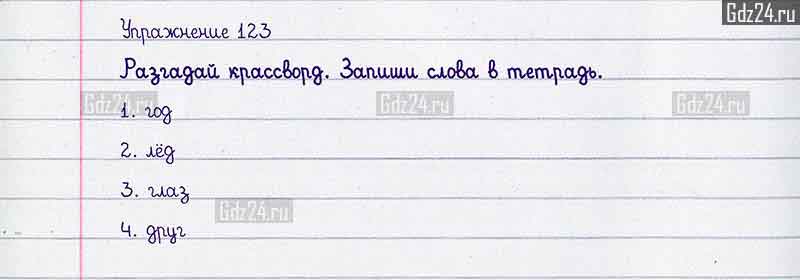 Gdz24.ru
Упражнение 123
Разгадай крассворд. Запиши слова в тетрадь.
Gdz24.ru Gdz24.ru Gdz24.ru
1. год
2. лёд
3. глаз
Gdz24.ru
4. друг